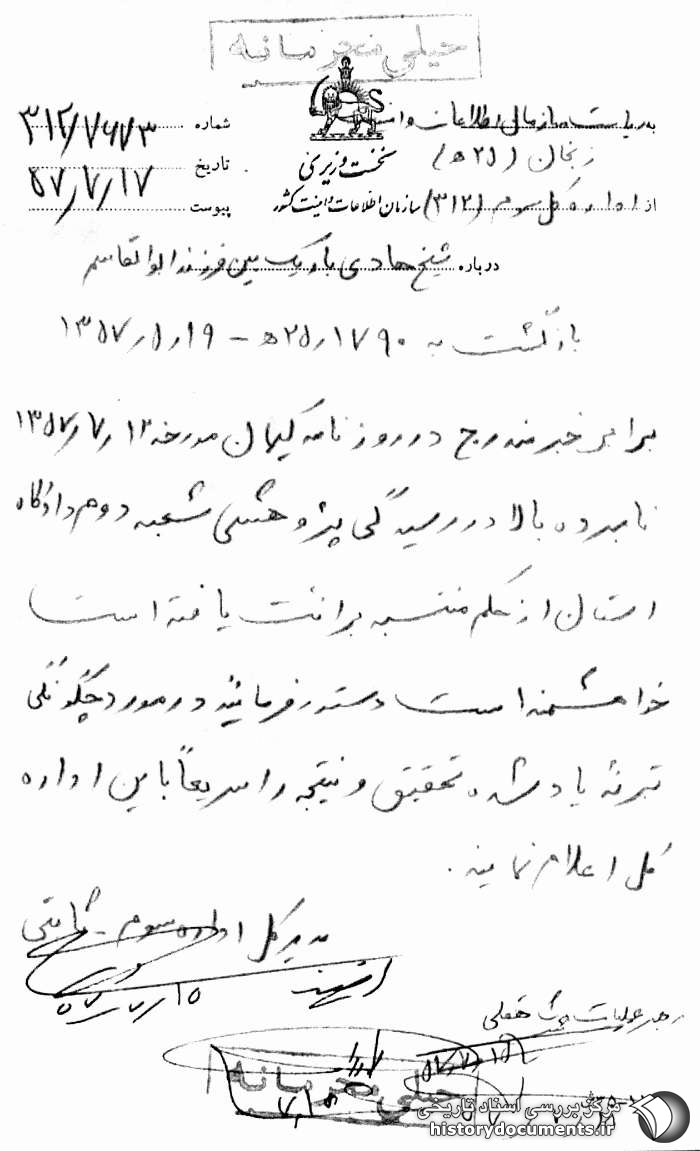 خیلی محرمانه
به ریاست سازمان اطلاعات و امنیت
شماره ۳۱۲/۷۶۷۳
زنجان (۲۵ ه)
نخست وزیری
تاریخ ۵۷/۷/۱۷
از اداره کل سوم (۳۱۲)
سازمان اطلاعات و امنیت کشور
پیوست
درباره شیخ هادی باریک بین فرزند ابوالقاسم
بازگشت به ۱۷۹۰/۲۵ ه – ۱۳۵۷/۵/۱۹
برابر خبر مندرج در روزنامه کیهان مورخه ۱۳۵۷/۷/۱۲
نامبرده بالا در رسیدگی پژوهشی شعبه دوم دادگاه
استان از حکم منتسبه برائت یافته است
خواهشمند است دستور فرمائید در مورد چگونگی
تبرئه یاد شده تحقیق و نتیجه را سریعاً باین اداره
کل اعلام نمایند.
مدیر کل اداره سوم – ثابتی
۵۷/۷/۱۵
رهبر عملیات
۵۷/۷/۱۵
خیلی محرمانه
مرکز بررسی اسناد تاریخی
historydocuments.ir